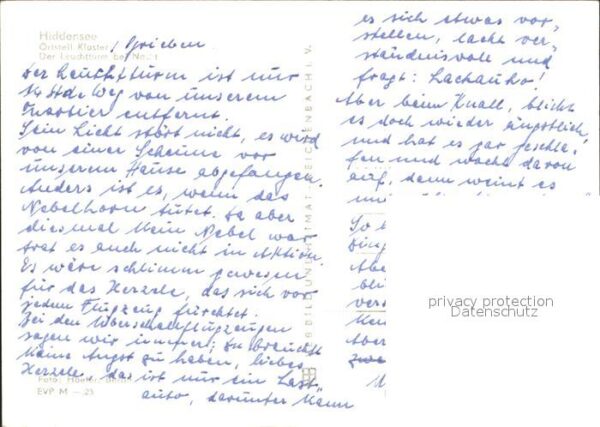 Hiddensee
Ortsteil Kloster, Grieben
Der Leuchtturm bei Nacht
Der Leuchtturm ist nur
1/4 Std. Weg von unserem
Quartier entfernt.
Sein Licht stört nicht, es wird
von einer Scheune vor
unserem Hause abgefangen.
Anders ist es, wenn das
Nebelhorn tutet. Da aber
diesmal kein Nebel war
trat es auch nicht in Aktion.
Es wäre schlimm gewesen
für das Herzele, das sich vor
jedem Flugzeug fürchtet.
Bei den Überschallflugzeugen
sagen wir immer: Du brauchst
keine Angst zu haben, liebes
Herzele, das ist nur ein Last-
auto, darunter kann
Foto:
EVP M — 23
BILD UND HEIMAT REICHENBACH I. V.
es sich etwas vor-
stellen, lacht ver-
ständnisvoll und
fragt: Lachauho!
Aber beim Knall, blickt
es doch wieder ängstlich
und hat es gar geschla-
fen und wacht davon
auf, dann weint es
So
Ding
Abe
bli
vers
Ken
Aber
zwe
privacy protection
Datenschutz